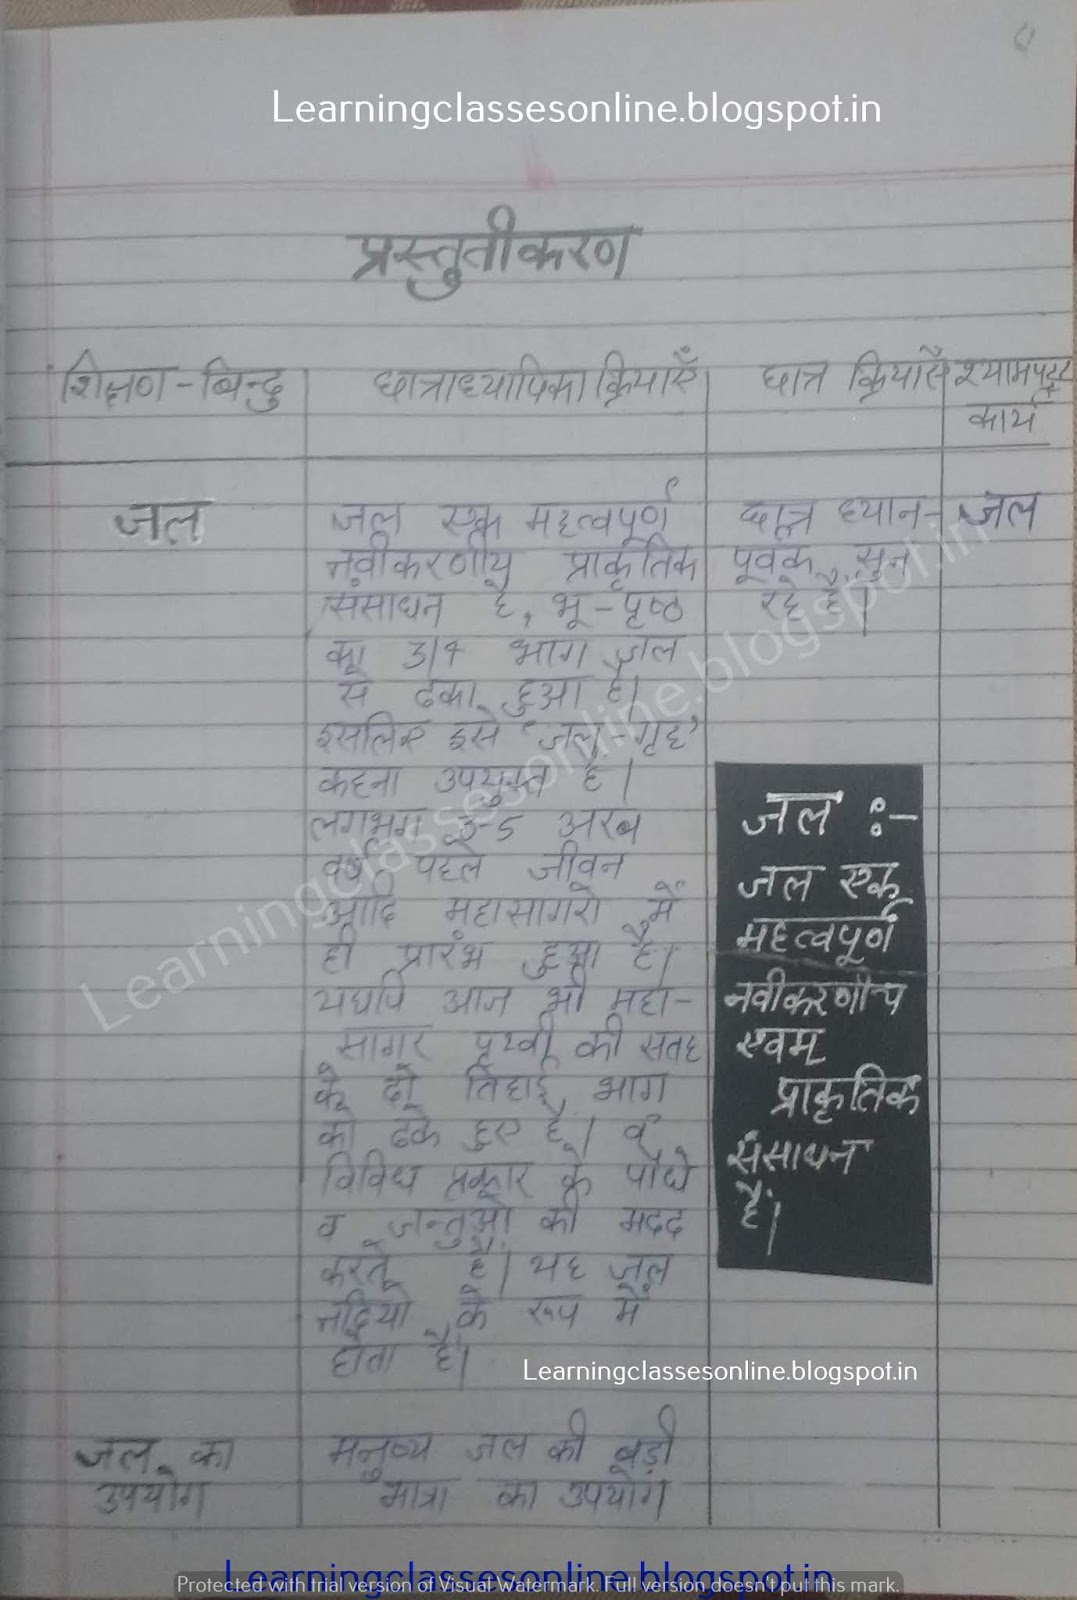 Learningclassesonline.blogspot.in
प्रस्तुतीकरण
शिक्षण-बिन्दु
छात्राध्यापिका क्रियाएँ
छात्र क्रियाऐं
श्यामपट्ट
कार्य
जल
जल एक महत्वपूर्ण
नवीकरणीय प्राकृतिक
संसाधन है, भू-पृष्ठ
का 3/4 भाग जल
से ढका हुआ है।
इसलिए इसे 'जल-गृह'
कहना उपयुक्त है।
लगभग 3-5 अरब
वर्ष पहले जीवन
आदि महासागरो में
ही प्रारंभ हुआ है।
यद्यपि आज भी महा-
सागर पृथ्वी की सतह
के दो तिहाई भाग
को ढके हुए है। व
विविध प्रकार के पौधे
व जन्तुओं की मदद
करते है। यह जल
नदियो के रूप में
होता है।
छात्र ध्यान-
पूर्वक सुन
रहे है।
जल
जल :-
जल एक
महत्वपूर्ण
नवीकरणीय
एवम्
प्राकृतिक
संसाधन
है।
Learningclassesonline.blogspot.in
Learningclassesonline.blogspot.in
जल का
उपयोग
मनुष्य जल की बड़ी
मात्रा का उपयोग
Learningclassesonline.blogspot.in
Protected with trial version of Visual Watermark. Full version doesn't put this mark.